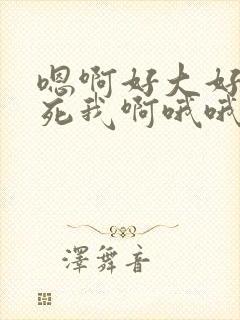 嗯啊好大好
死我啊哦哦
澤舞音